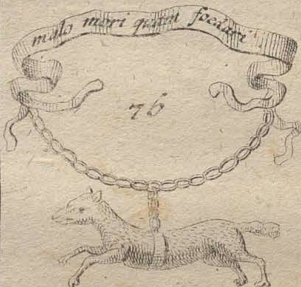 malo mori quam foedari
76